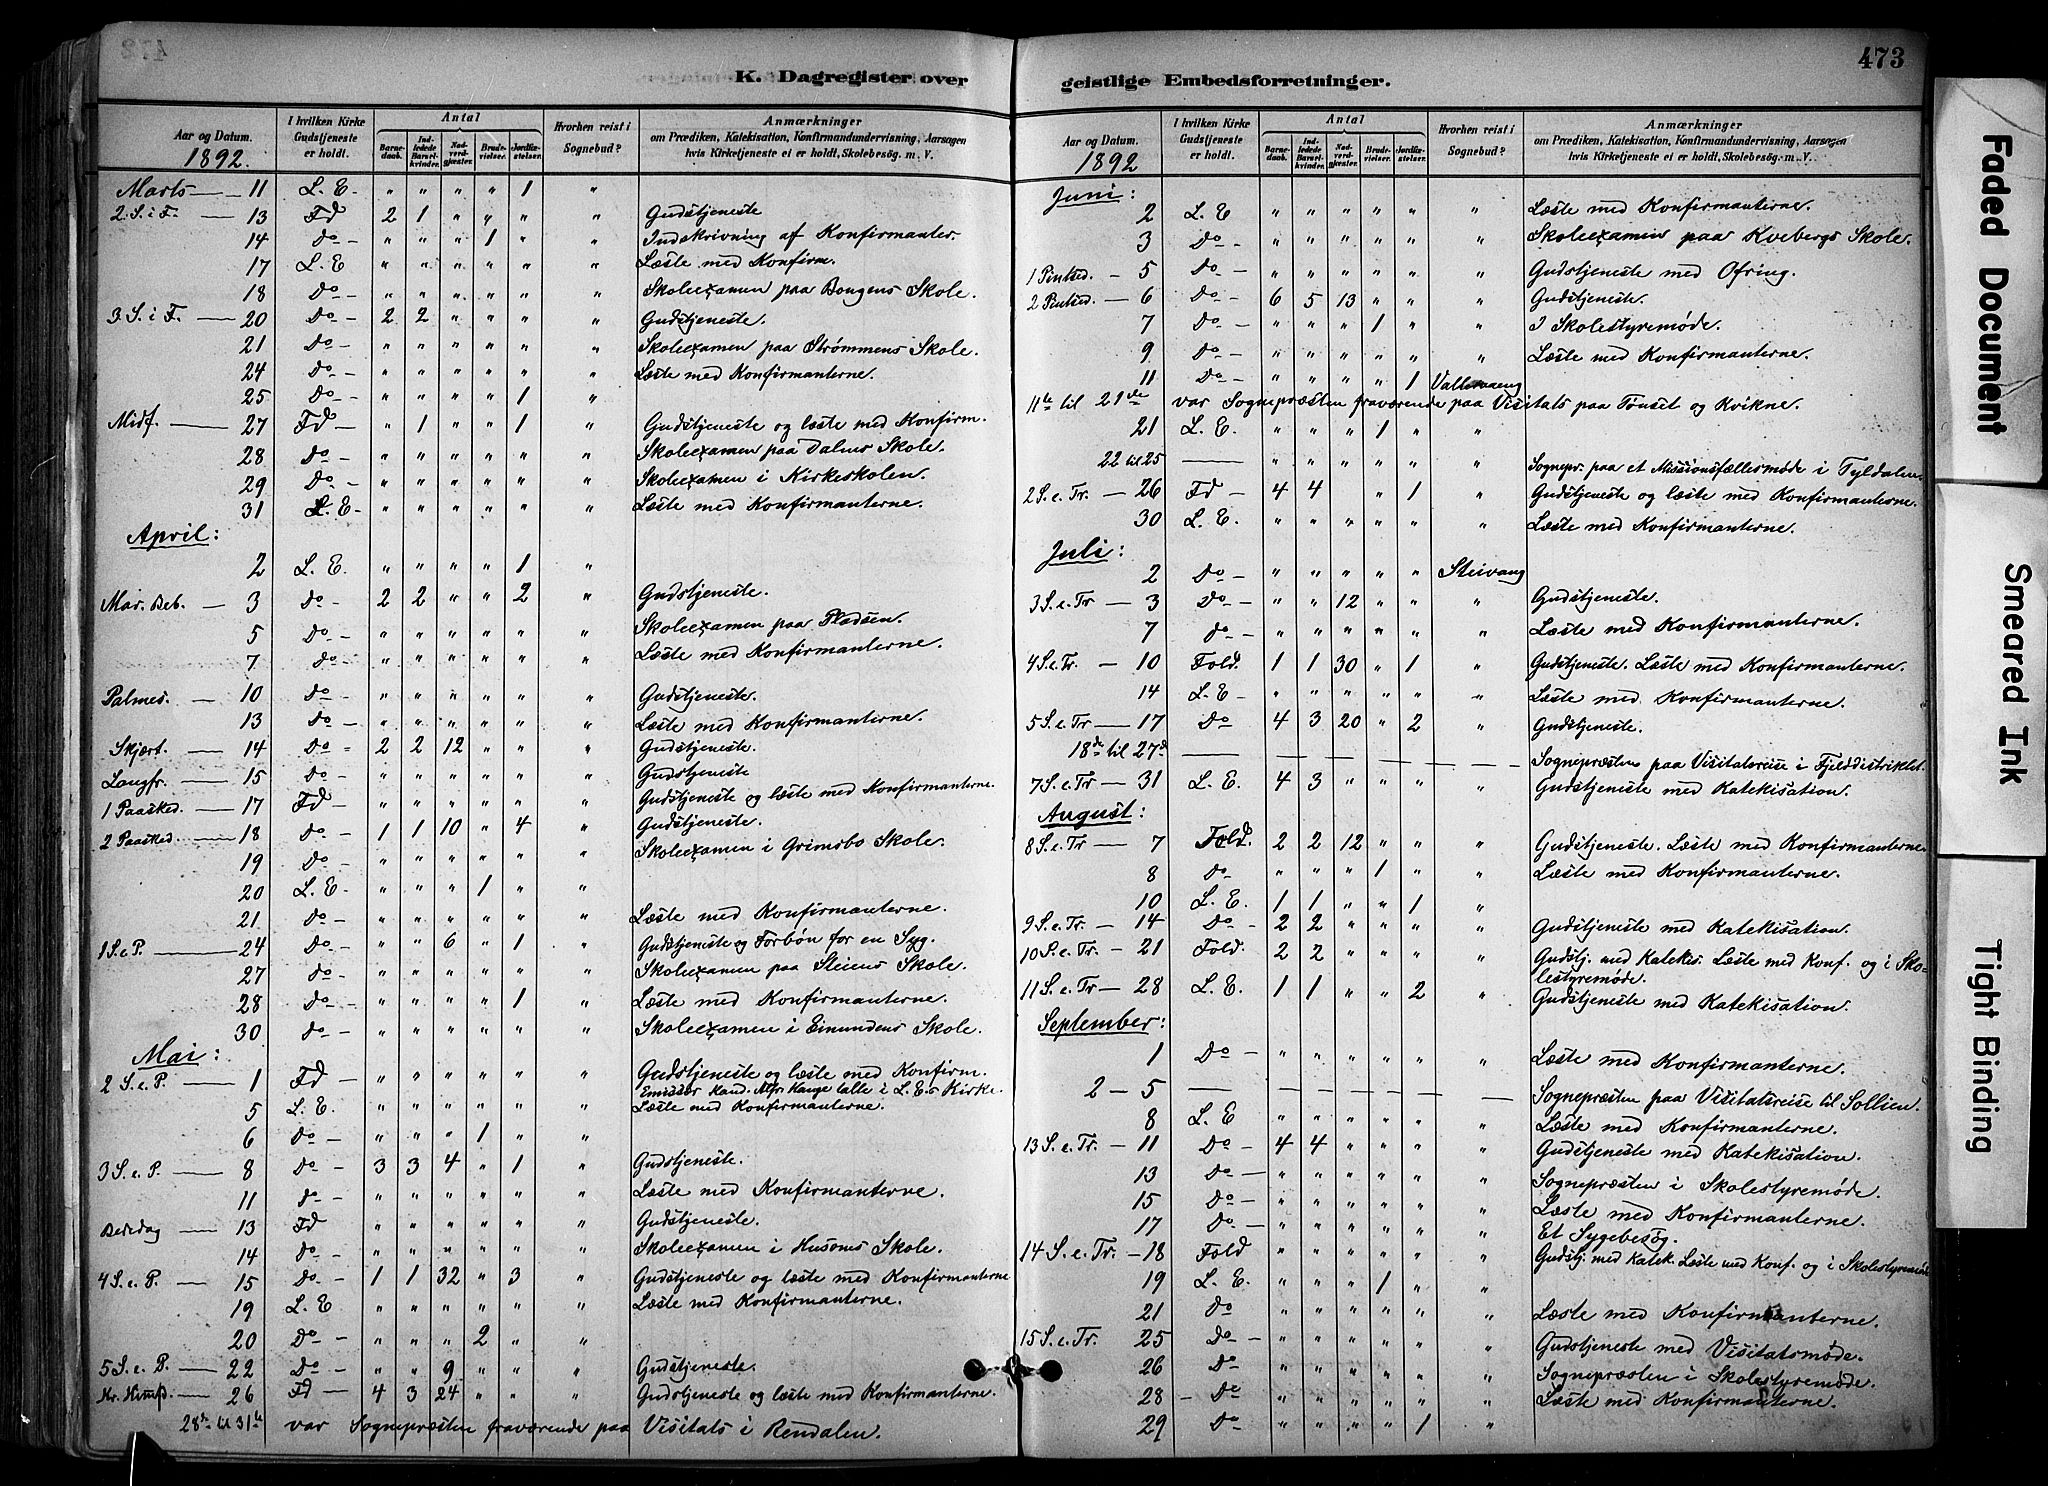 473
K. Dagregister over geistlige Embedsforretninger.
Aar og Datum. 1892. | I hvilken Kirke Gudstjeneste er holdt. | Antal | Barnedaab. | Indledede Barselkvinder. | Nadverdgjæster. | Brudevielser. | Jordfæstelser. | Hvorhen reist i Sognebud? | Anmærkninger om Prædiken, Katekisation, Konfirmandundervisning, Aarsagen hvis Kirketjeneste ei er holdt, Skolebesøg. m. V.
Marts — 11 L. E. " " " " 1 "
2. S. i F. — 13 Fd 2 1 " " " " Gudstjeneste
14 Do — " " " 1 " " Indskrivning af Konfirmanter.
17 L. E " " " " " " Læste med Konfirm.
18 Do — " " " " " " Skoleexamen paa Bougens Skole.
3. S. i F. — 20 Do — 2 2 " " " " Gudstjeneste.
21 Do — " " " " " " Skoleexamen paa Strømmens Skole.
24 Do — " " " " " " Læste med Konfirmanterne.
25 Do — " " " " 1 "
Midf. — 27 Fd — " 1 " " 1 " Gudstjeneste og læste med Konfirm.
28 Do — " " " " " " Skoleexamen paa Dalens Skole.
29 Do — " " " " " " Skoleexamen i Kirkeskolen.
31 L. E — " " " " " " Læste med Konfirmanterne.
April:
2 L. E. " " " " 1 "
Mar. Beb. — 3 Do — 2 2 " " 2 " Gudstjeneste.
5 Do — " " " " " " Skoleexamen paa Pladsen.
7 Do — " " " " " " Læste med Konfirmanterne.
Palmes. — 10 Do — " " " " " " Gudstjeneste.
13 Do — " " " " " " Læste med Konfirmanterne.
Skjært. — 14 Do — 2 2 12 " " " Gudstjeneste.
Langfr. — 15 Do — " " " " " " Gudstjeneste
1 Paasked. — 17 Fd — " " " " " " Gudstjeneste og læste med Konfirmanterne.
2 Paasked. — 18 Do — 1 1 10 " 4 " Gudstjeneste.
19 Do — " " " " " " Skoleexamen i Grimsbo Skole.
20 L. E. " " " 1 " "
21 Do — " " " " " " Læste med Konfirmanterne.
1 S. e P. — 24 Do — " " 6 " 1 " Gudstjeneste og Forbøn for en Syg.
27 Do — " " " " " " Skoleexamen paa Steiens Skole.
28 Do — " " " " 1 " Læste med Konfirmanterne.
30 Do — " " " " " " Skoleexamen i Einundens Skole.
Mai:
2 S. e P. — 1 Fd — " " " " " " Gudstjeneste og læste med Konfirm.
Emissær Kand. Alfr. Hauge talte i L. E.s Kirke.
5 L. E. " " " " " " Læste med Konfirmanterne.
6 Do — " " " 1 " "
3 S. e P. — 8 Do — 3 3 4 " 1 " Gudstjeneste.
11 Do — " " " " " " Læste med Konfirmanterne.
Bededag — 13 Fd " " " " " " Gudstjeneste.
14 Do — " " " " " " Skoleexamen i Husoms Skole.
4 S. e P. — 15 Do — 1 1 32 " 3 " Gudstjeneste og læste med Konfirmanterne
19 L. E " " " " " " Læste med Konfirmanterne.
20 Do — " " " 2 " "
5 S. e P. — 22 Do — " " 9 " " " Gudstjeneste.
Kr. Himfd. — 26 Fd — 4 3 24 " " " Gudstjeneste og læste med Konfirmanterne.
28de til 31te var Sognepræsten fraværende paa Visitats i Rendalen.
Aar og Datum. 1892 | I hvilken Kirke Gudstjeneste er holdt. | Antal | Barnedaab. | Indledede Barselkvinder. | Nadverdgjæster. | Brudevielser. | Jordfæstelser. | Hvorhen reist i Sognebud? | Anmærkninger om Prædiken, Katekisation, Konfirmandundervisning, Aarsagen hvis Kirketjeneste ei er holdt, Skolebesøg. m. V.
Juni:
2 L. E " " " " " " Læste med Konfirmanterne.
3 Do — " " " " " " Skoleexamen paa Kvebergs Skole.
1 Pintsed. — 5 Do — " " " " " " Gudstjeneste med Ofring.
2 Pintsed. — 6 Do — 6 5 13 " " " Gudstjeneste.
7 Do — " " " 1 " " I Skolestyremøde.
9 Do — " " " " " " Læste med Konfirmanterne.
11 Do — " " " " 1 Vollevaeng
11te til 21de var Sognepræsten fraværende paa Visitats paa Tønset og Kvikne.
21 L. E. " " " 1 " "
22 til 25 — " " " " " " Sognepr. paa et Missionsfællesmøde i Tyldalen.
2 S. e. Tr. — 26 Fd — 4 4 " 1 " Gudstjeneste og læste med Konfirmanterne.
30 L. E. " " " " " " Læste med Konfirmanterne.
Juli:
2 Do — " " " " " Steivang
3 S. e. Tr — 3 Do — " " 12 " " " Gudstjeneste.
7 Do — " " " " " " Læste med Konfirmanterne.
4 S. e. Tr. — 10 Fold. 1 1 30 " 1 " Gudstjeneste. Læste med Konfirmanterne.
14 L. E — " " " " " " Læste med Konfirmanterne.
5 S. e. Tr — 17 Do 4 3 20 " 2 " Gudstjeneste.
18de til 27de — — — — — — — Sognepræsten paa Visitatsreise i Fjelddistriktet.
7 S. e. Tr — 31 L. E. 4 3 " " " " Gudstjeneste med Katekisation.
August:
8 S. e. Tr — 7 Fold. 2 2 12 " " " Gudstjeneste. Læste med Konfirmanterne.
8 Do — " " " 1 " " Læste med Konfirmanterne.
10 L. E. 1 1 " " 1 "
9 S. e. Tr. — 14 Do — 2 2 " " " " Gudstjeneste med Katekisation.
10 S. e. Tr. — 21 Fold. 2 2 " " " " Gudstj. med Katekis. Læste med Konf. og i Sko-
lestyremøde.
11 S. e. Tr — 28 L. E. 1 1 " " 2 " Gudstjeneste med Katekisation.
September:
1 Do — " " " " " " Læste med Konfirmanterne.
2 — 5 — — — — — — — Sognepræsten paa Visitatsreise til Sollien.
8 L. E " " " " " " Læste med Konfirmanterne.
13 S. e. Tr. — 11 Do — 4 4 " " " " Gudstjeneste med Katekisation.
13 Do — " " " " " " Sognepræsten i Skolestyremøde.
15 Do — " " " " " " Læste med Konfirmanterne.
17 Do — " " " " " " Et Sygebesøg.
14 S. e. Tr. — 18 Fold " " " " " " Gudstj. med Katek. Læste med Konf. og i Skolestyremøde
19 L. E. " " " 1 " "
21 Do " " " " " " Læste med Konfirmanterne.
15 S. e. Tr. 25 Do — " " " " " " Gudstjeneste med Visitatsmøde.
26 Do — " " " " " " Sognepræsten i Skolestyremøde.
28 — Do — " " " " " " Læste med Konfirmanterne.
29 Do — " " " " 1 "
Faded Document
Smeared Ink
Tight Binding